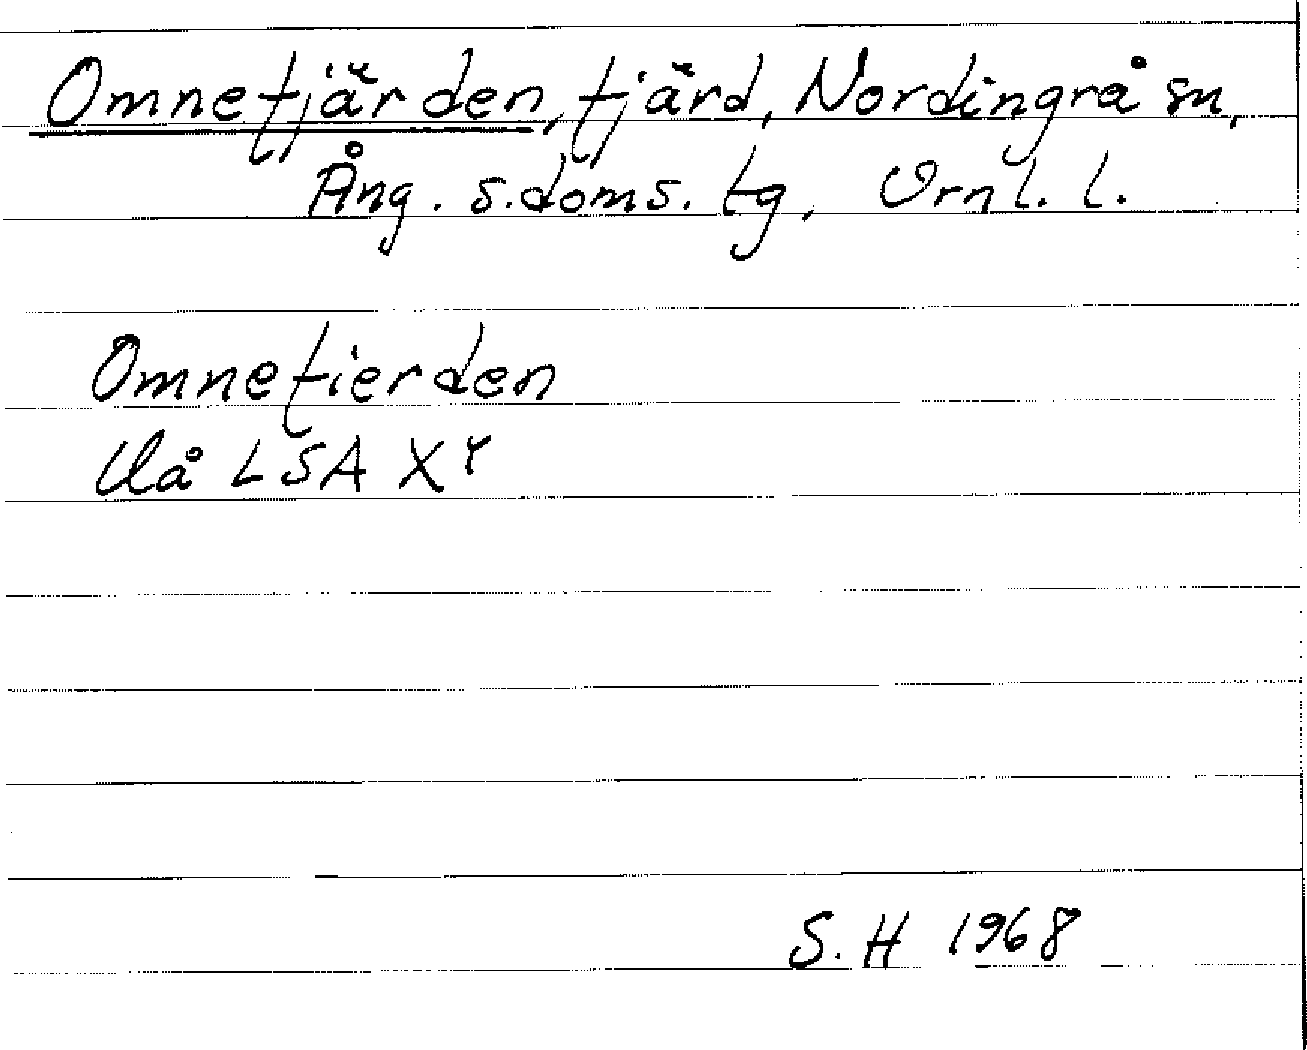 Omnefjärden, fjärd, Nordingrå sn,
Ång. s. doms. tg, Vrnl. l.
Omnefierden
Uå LSA X Y
S. H 1968